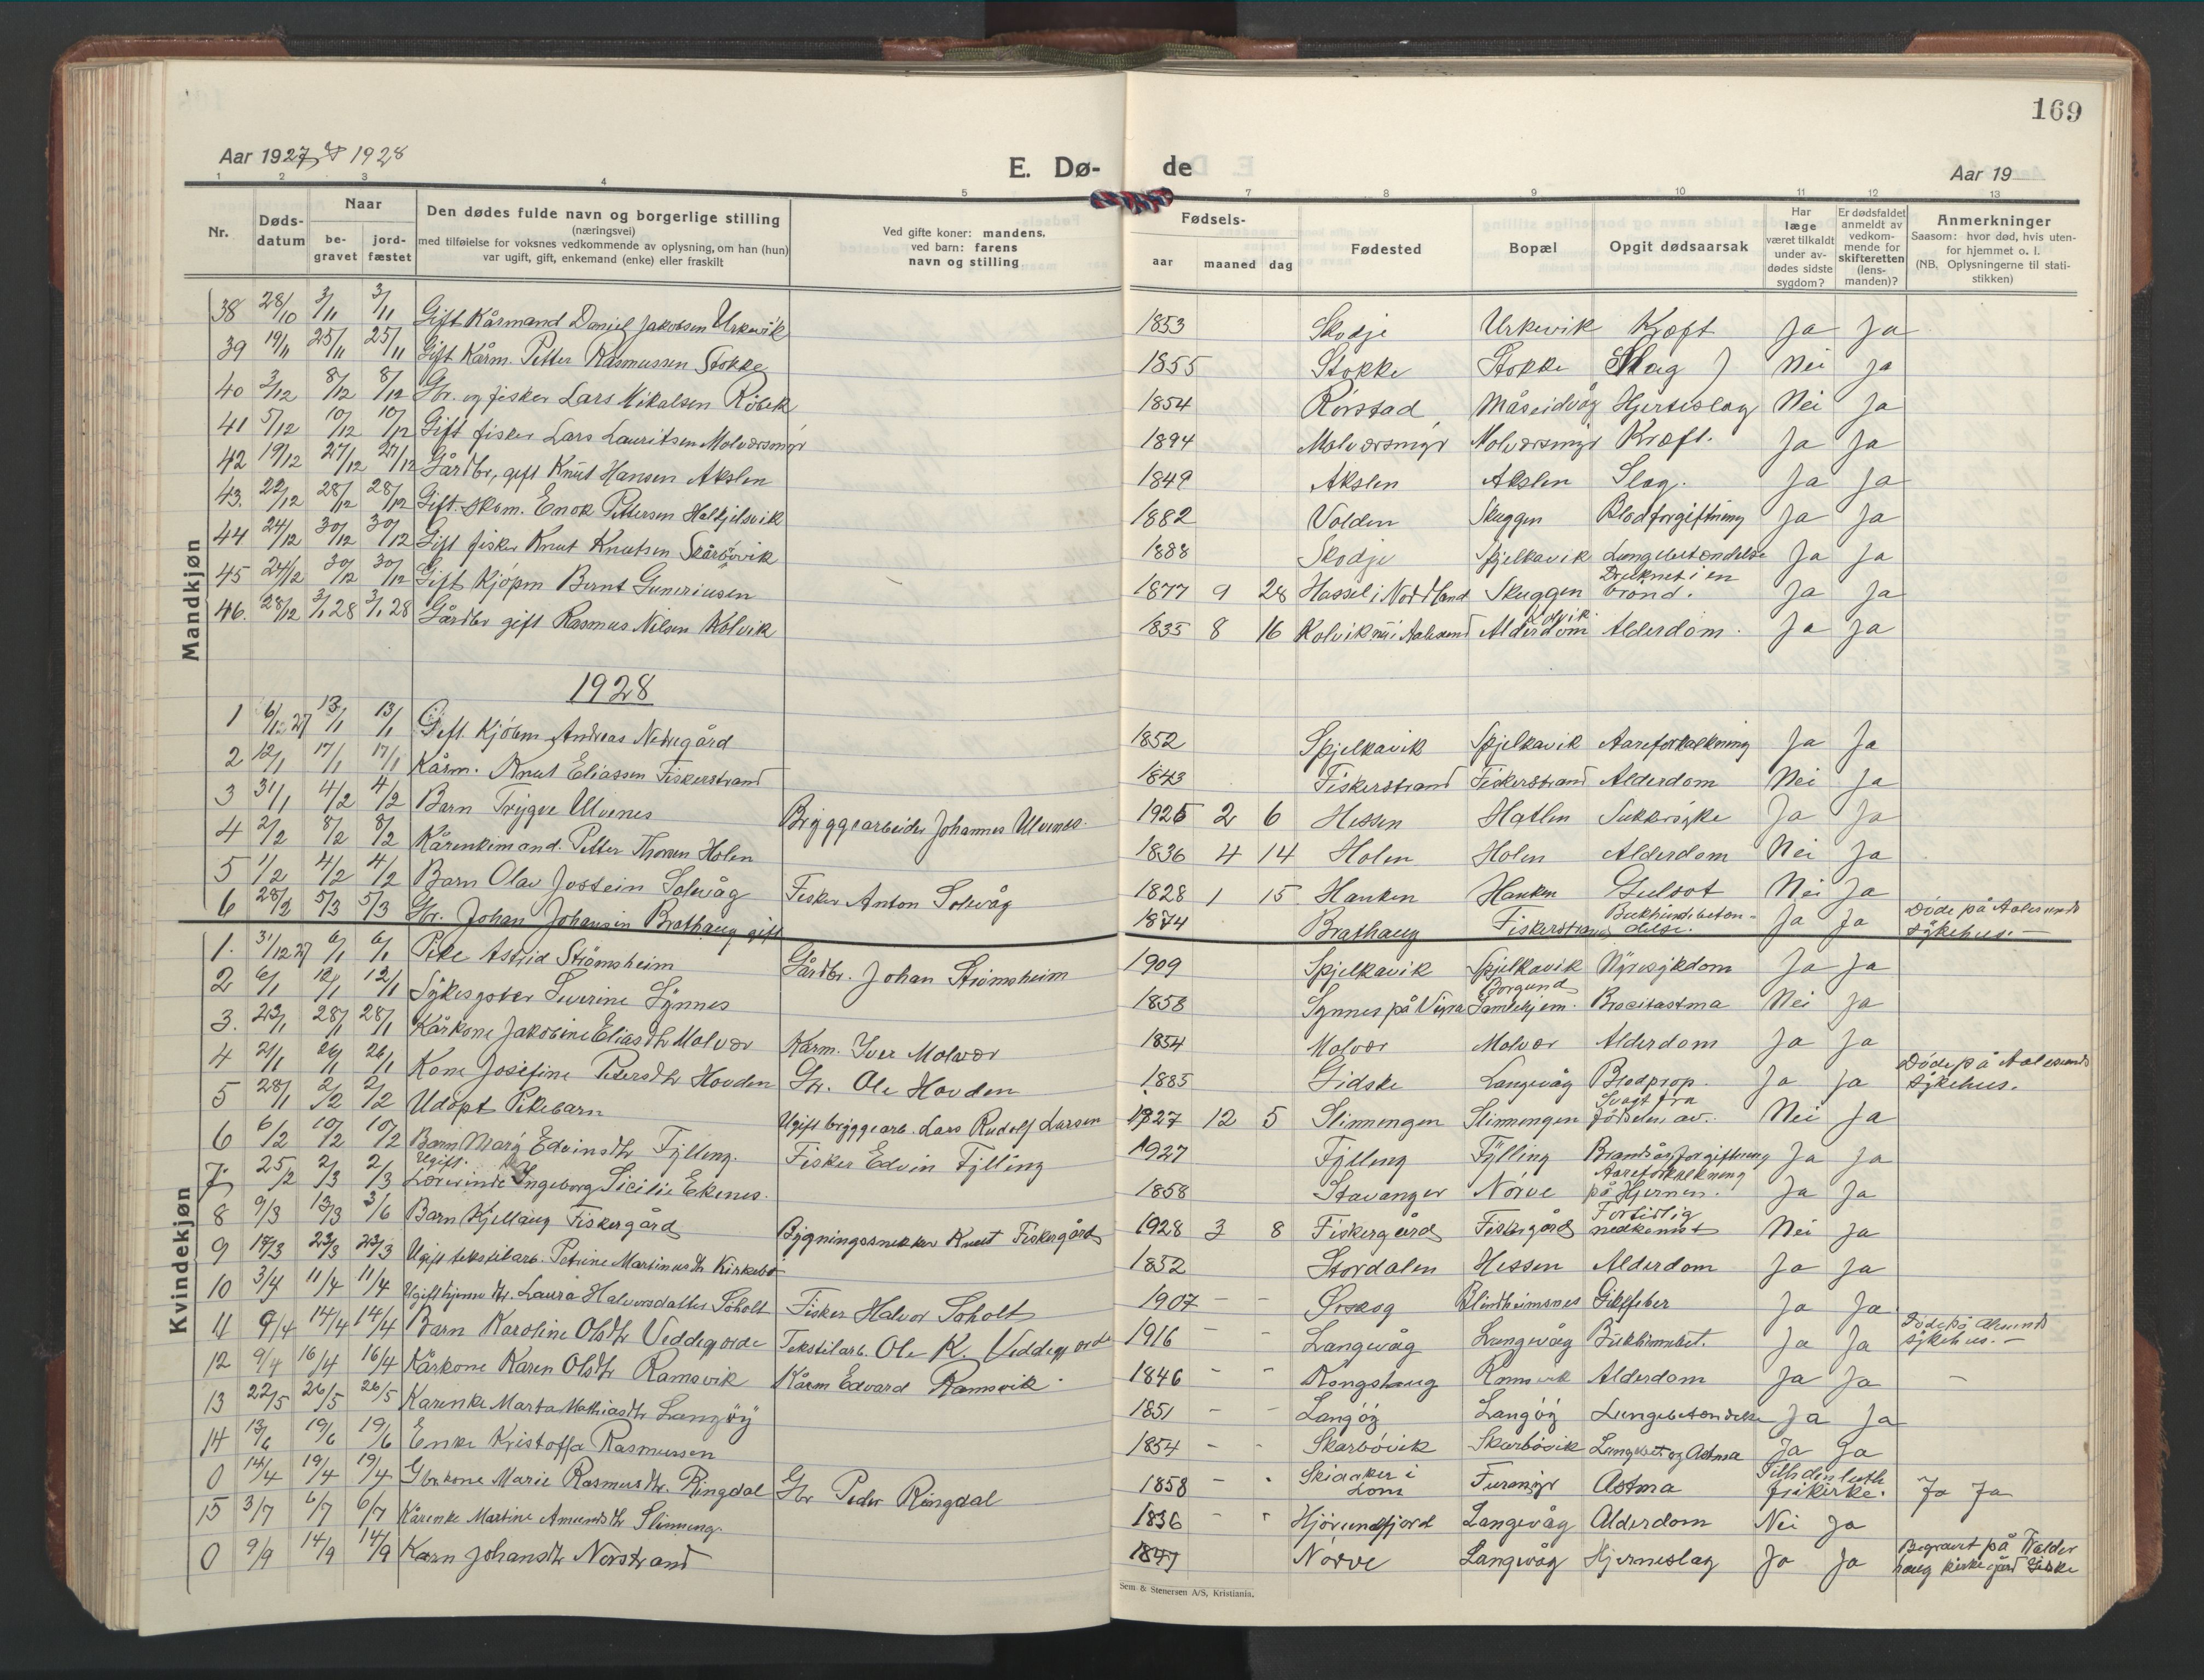 169
Aar 1927 & 1928
E. Dø- de
Aar 19
1 2 3 4 5 7 8 9 10 11 12 13
Nr.
Døds-datum
Naar
be-gravet
jord-fæstet
Den dødes fulde navn og borgerlige stilling
(næringsvei)
med tilføielse for voksnes vedkommende av oplysning, om han (hun)
var ugift, gift, enkemand (enke) eller fraskilt
Ved gifte koner: mandens.
ved barn: farens
navn og stilling
Fødsels-
aar maaned dag
Fødested
Bopæl
Opgit dødsaarsak
Har læge været tilkaldt under av-dødes sidste sygdom?
Er dødsfaldet anmeldt av vedkom-mende for skifteretten (lens-manden)?
Anmerkninger
Saasom: hvor død, hvis uten-
for hjemmet o. l.
(NB. Oplysningerne til stati-
stikken)
Mandkjøn
38 28/10 3/11 3/11 Gift Kårmand Daniel Jakobsen Urkevik 1853 Skodje Urkevik Kræft Ja Ja
39 19/11 25/11 25/11 Gift Kårm. Petter Rasmussen Stokke 1855 Stokke Stokke Slag Nei Ja
40 3/12 8/12 8/12 Gbr. og fisker Lars Mikalsen Röbek 1854 Rörstad Måseidvåg Hjerteslag Nei Ja
41 5/12 10/12 10/12 Gift fisker Lars Lauritsen Molværsmyr 1894 Molværsmyr Molværsmyr Kræft. Ja Ja
42 19/12 27/12 27/12 Gårdbr, gift Knut Hansen Akslen 1849 Akslen Akslen Slag. Ja Ja
43. 22/12 28/12 28/12 Gift. skom. Enok Pettersen Halkjelsvik 1882 Volden Skuggen Blodforgiftning Ja Ja
44 24/12 30/12 30/12 Gift fisker Knut Knutsen Skarbövik 1888 Skodje Spjelkavik Lungebetændelse Ja Ja
45 24/12 30/12 30/12 Gift Kjöpm Bernt Guneriusen 1877 9 28 Hassel i Nordland Skuggen Druknet i en brönd. Ja Ja
46. 28/12 3/1 28 3/1 28 Gårdbr gift Rasmus Nilsen Kolvik 1835 8 16 Kolvik Kolvik Alderdom. Ja Ja
1928
1 6/12 27 13/1 13/1 Gift Kjöbm Andreas Nedregård 1852 Spjelkavik Spjelkavik Aareforkalkning Ja Ja
2 12/1 17/1 17/1 Kårm. Knut Eliassen Fiskerstrand 1843 Fiskerstrand Fiskerstrand Alderdom Nei Ja
3 31/1 4/2 4/2 Barn Trygve Ulvenes Bryggearbeider Johannes Ulvenes. 1925 2 6 Hessen Hatlen Sukkersyke Ja Ja
4 2/2 8/2 8/2 Kårenkemand. Petter Thorsen Holen 1836 4 14 Holen Holen Alderdom Nei Ja
5 1/2 4/2 4/2 Barn Olav Jostein Solevåg Fisker Anton Solevåg 1828 1 15 Hanken Hanken Gulsot Nei Ja
6 28/2 5/3 5/3 Gbr. Johan Johansen Brathaug gift 1874 Brathaug Fiskerstrand Bukhindebeten-delse. Ja Ja Döde på Aalesunds sykehus.
Kvindekjøn
1. 31/12 27 6/1 6/1 Pike Astrid Strömsheim Gårdbr. Johan Strömsheim 1909 Spjelkavik Spjelkavik Nyresykdom Ja Ja
2 6/1 12/1 12/1 Sykesöster Severine Synnes 1858 Synnes på Vigra Borgund Gamlehjem. Nei Ja
3. 23/1 28/1 28/1 Kårkone Jakobine Eliasdtr Molvær Karm. Iver Molvær 1854 Molvær Molvær Alderdom Ja Ja
4 21/1 26/1 26/1 Kone Josefine Petersdtr Hovden Gbr. Ole Hovden 1885 Gidske Langevåg Blodprop. Ja Ja Döde på Aalesunds sykehus.
5 28/1 2/2 2/2 Udöpt Pikebarn Ugift bryggearb. Lars Rudolf Larsen 1927 12 5 Slinnengen Slinnengen Svagt fra födselen av. Nei Ja
6 6/2 10/2 10/2 Barn Mary Edvinsdtr Fylling. Fisker Edvin Fylling 1927 Fylling Fylling Ja Ja
7 25/2 2/3 2/3 Ugift. Lærerinde Ingeborg Sicilie Ekenes. 1858 Stavanger Nörve Aareforkalkning på Hjernen. Ja Ja
8 9/3 13/3 3/6 Barn Kjellaug Fiskergård Bygningssnekker Knut Fiskergård 1928 3 8 Fiskergård Fiskergård Fortidlig nedkomst Nei Ja
9 18/3 23/3 23/3 Ugift tekstilarb. Petrine Martinusdtr Kirkebö 1852 Stordalen Hessen Alderdom Ja Ja
10 3/4 11/4 11/4 Ugift hjemmedtr. Laura Halvorsdatter Söholt Fisker Halvor Söholt 1907 - - Ørskog Blindheimsnes Giktfeber Ja Ja
11 9/4 14/4 14/4 Barn Karoline Olsdtr Veddegjerde Tekstilarb. Ole K. Veddegjerde 1916 - - Langevåg Langevåg Ja Ja Döde på Alesunds sykehus. -
12 9/4 16/4 16/4 Kårkone Karen Olsdtr Ramsvik Kårm Edvard Ramsvik 1846 - - Kongshaug Ramsvik Alderdom Ja Ja -
13 22/5 26/5 26/5 Karenke Marta Mathiasdtr Langöy 1851 - - Langöy Langöy Lungebetændelse Ja Ja
14 13/6 19/6 19/6 Enke Kristoffa Rasmussen 1854 - - Skarbövik Skarbövik Lungebet. og Astma Ja Ja
0 14/4 19/4 19/4 Gbrkone Marie Rasmusdtr. Ringdal Gbr Peder Ringdal 1858 - - Skiaaker i Lom Furmyr Astma Tilh den luth frikirke. Ja Ja
15 3/7 6/7 6/7 Kårenke Martine Amundsdtr Slinneng. 1836 - - Hjörundfjord Langevåg Alderdom Nei Ja
0 9/9 14/9 14/9 Karn Johansdtr Nörstrand 1847 Nörve Langevåg Hjerneslag Ja Ja Begravet på Valder haug kirkegård Giske
Sem & Stenersen A/S, Kristiania.